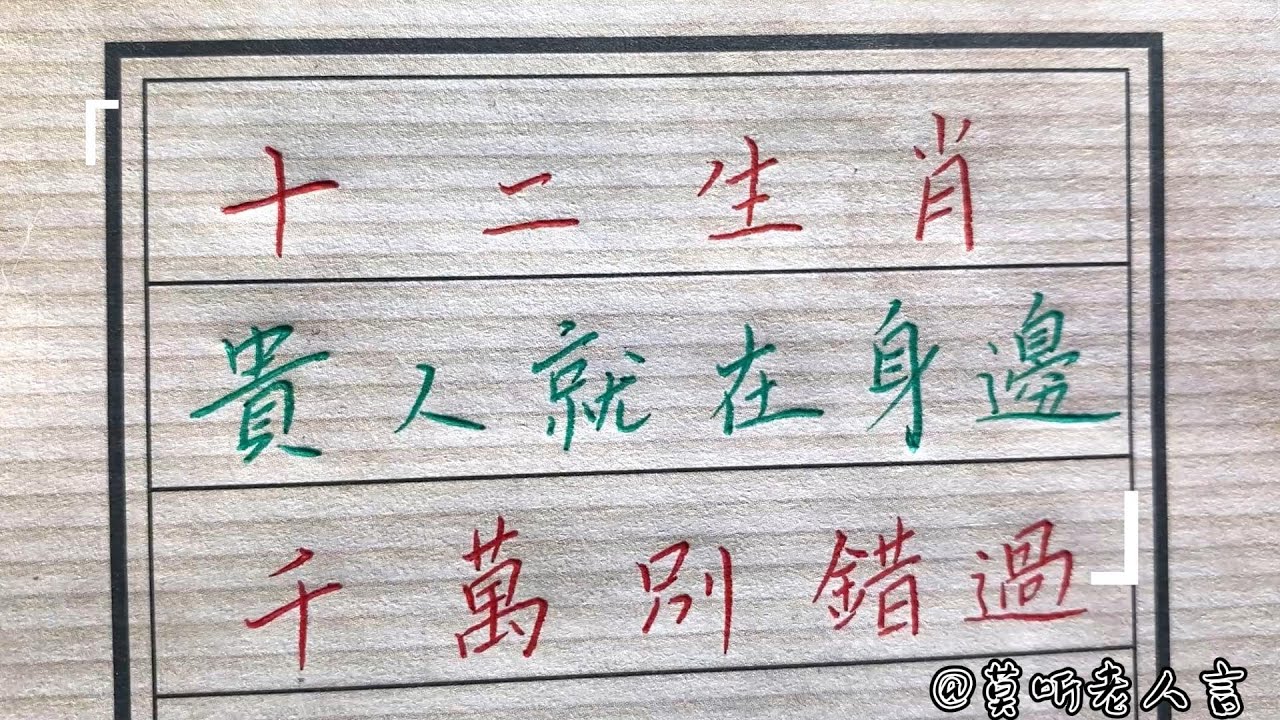 十二生肖
貴人就在身邊
千萬別錯過
@莫听老人言